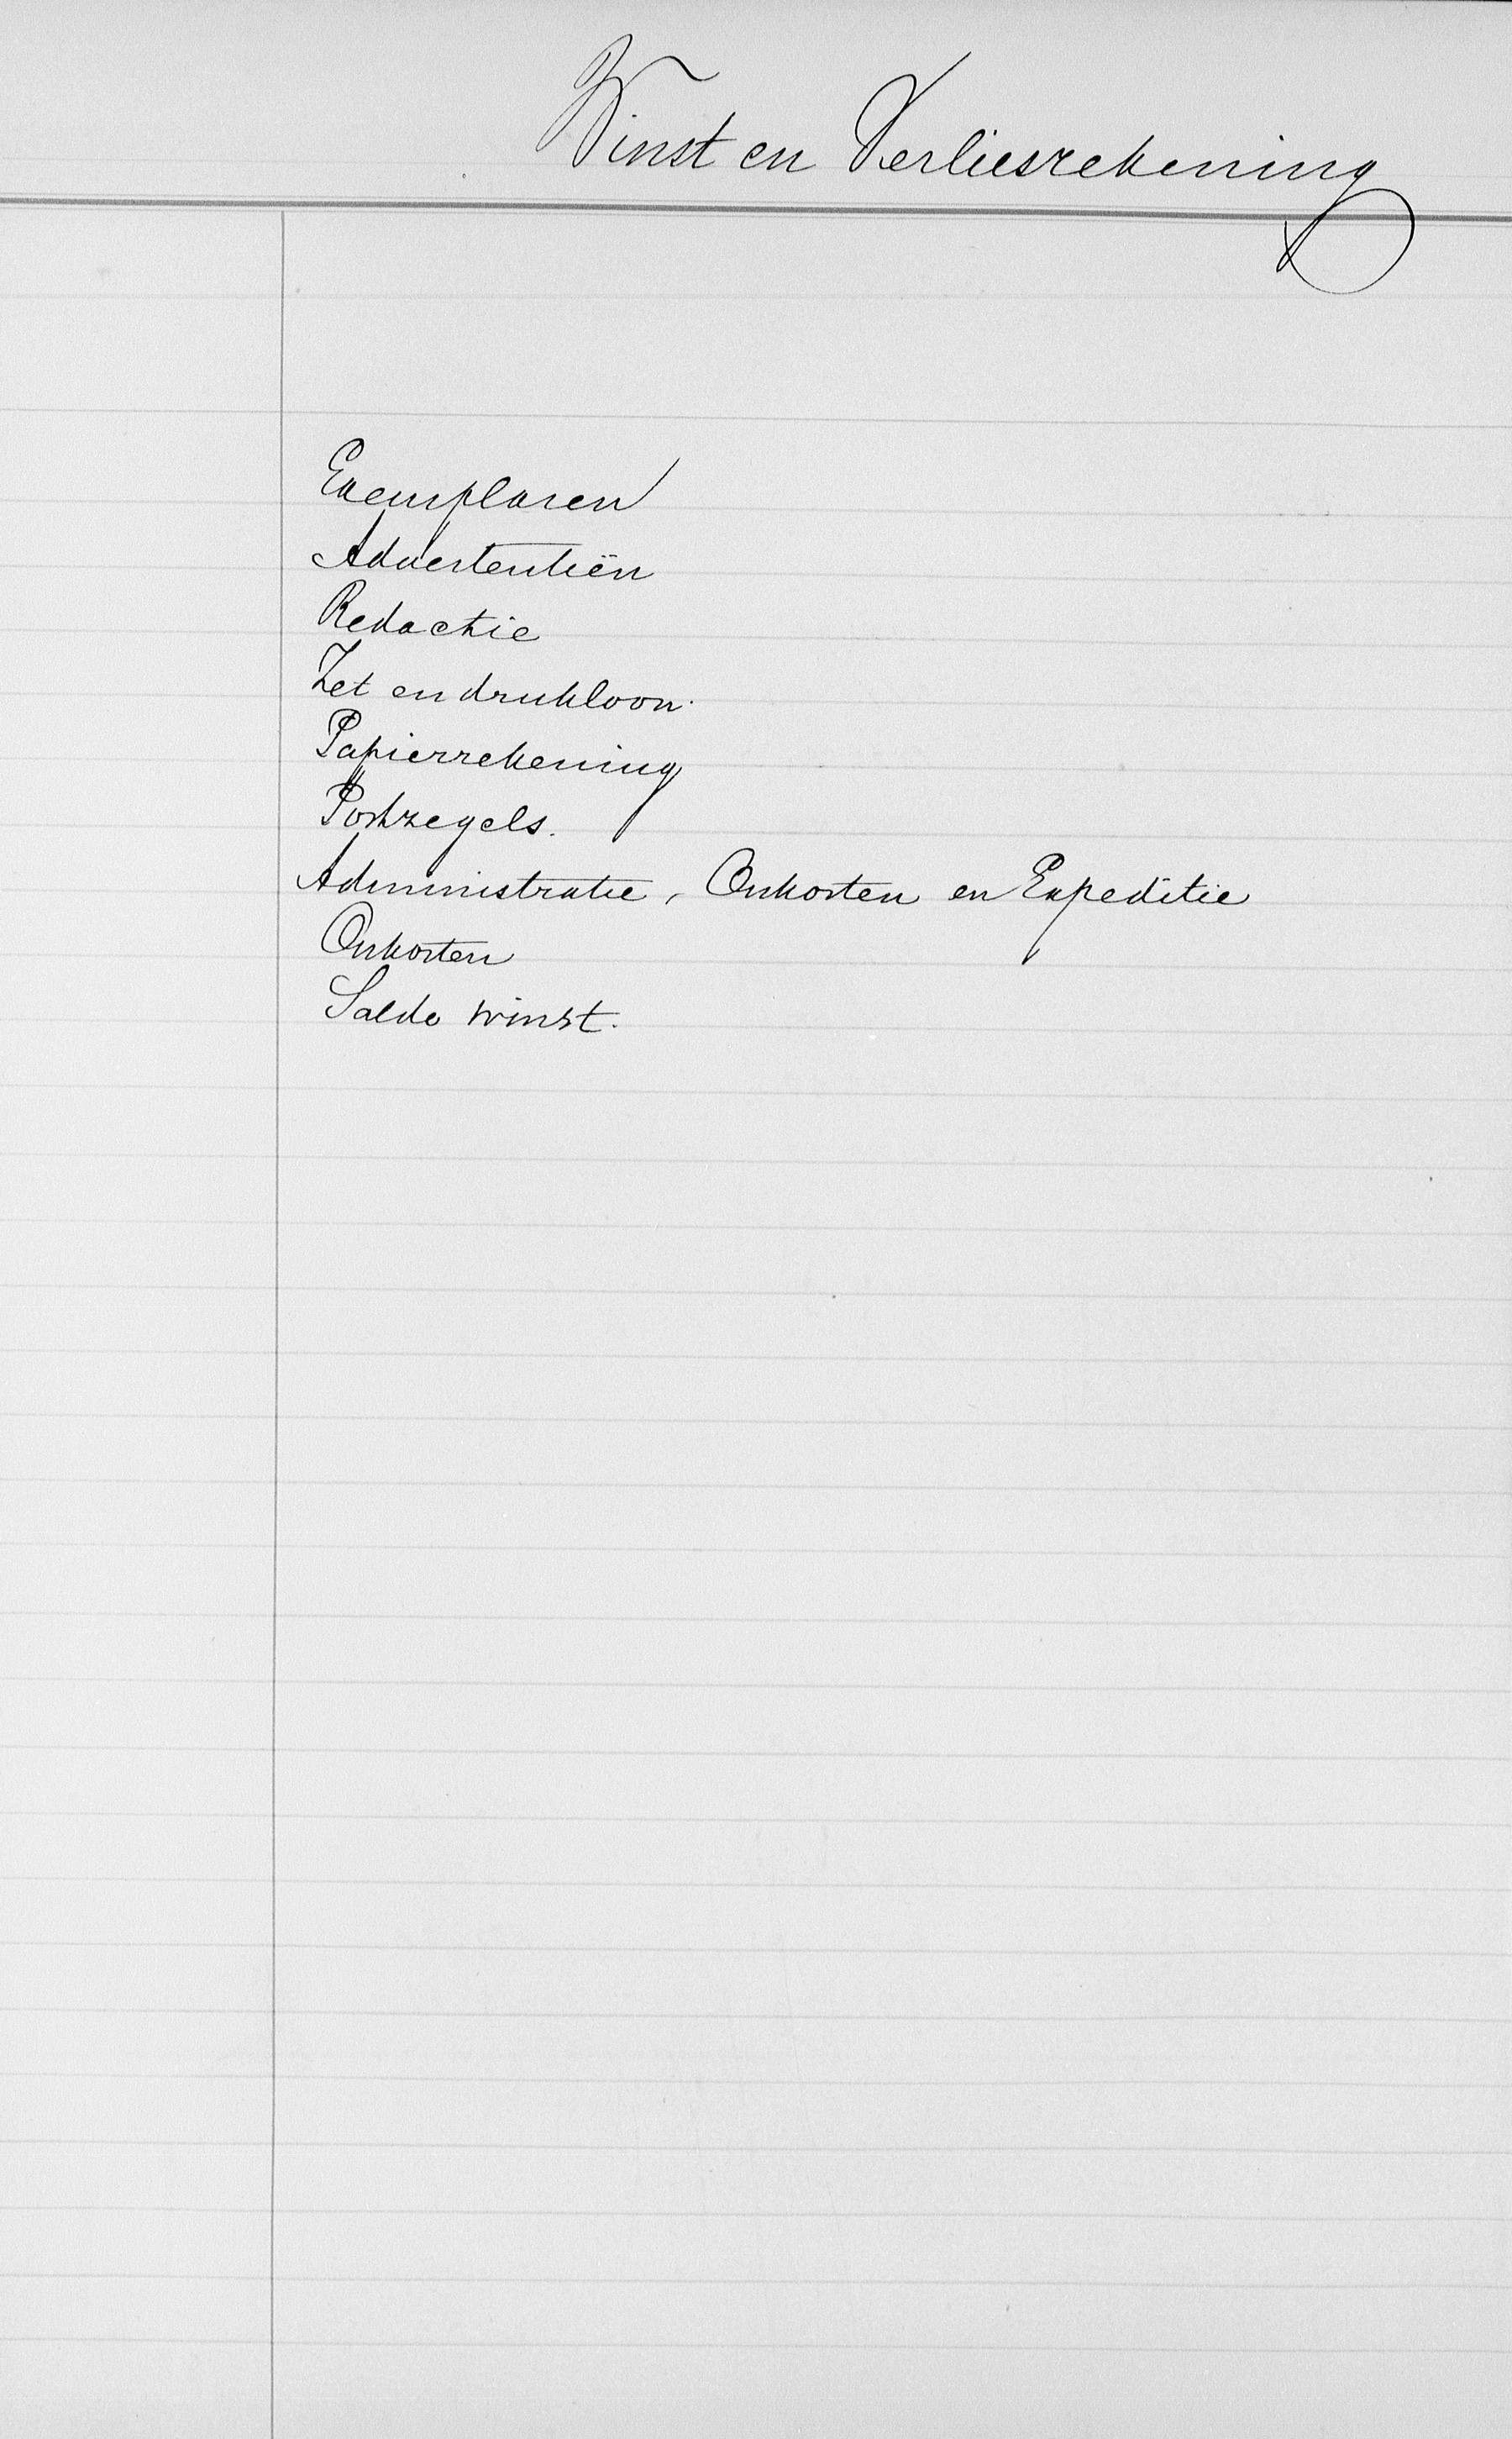 Winst en Verliesrekening
Exemplaren
Advertentiën
Redactie
Zet en drukloon.
Papierrekening
Postzegels.
Administratie, Onkosten en Expeditie
Onkosten
Saldo winst.